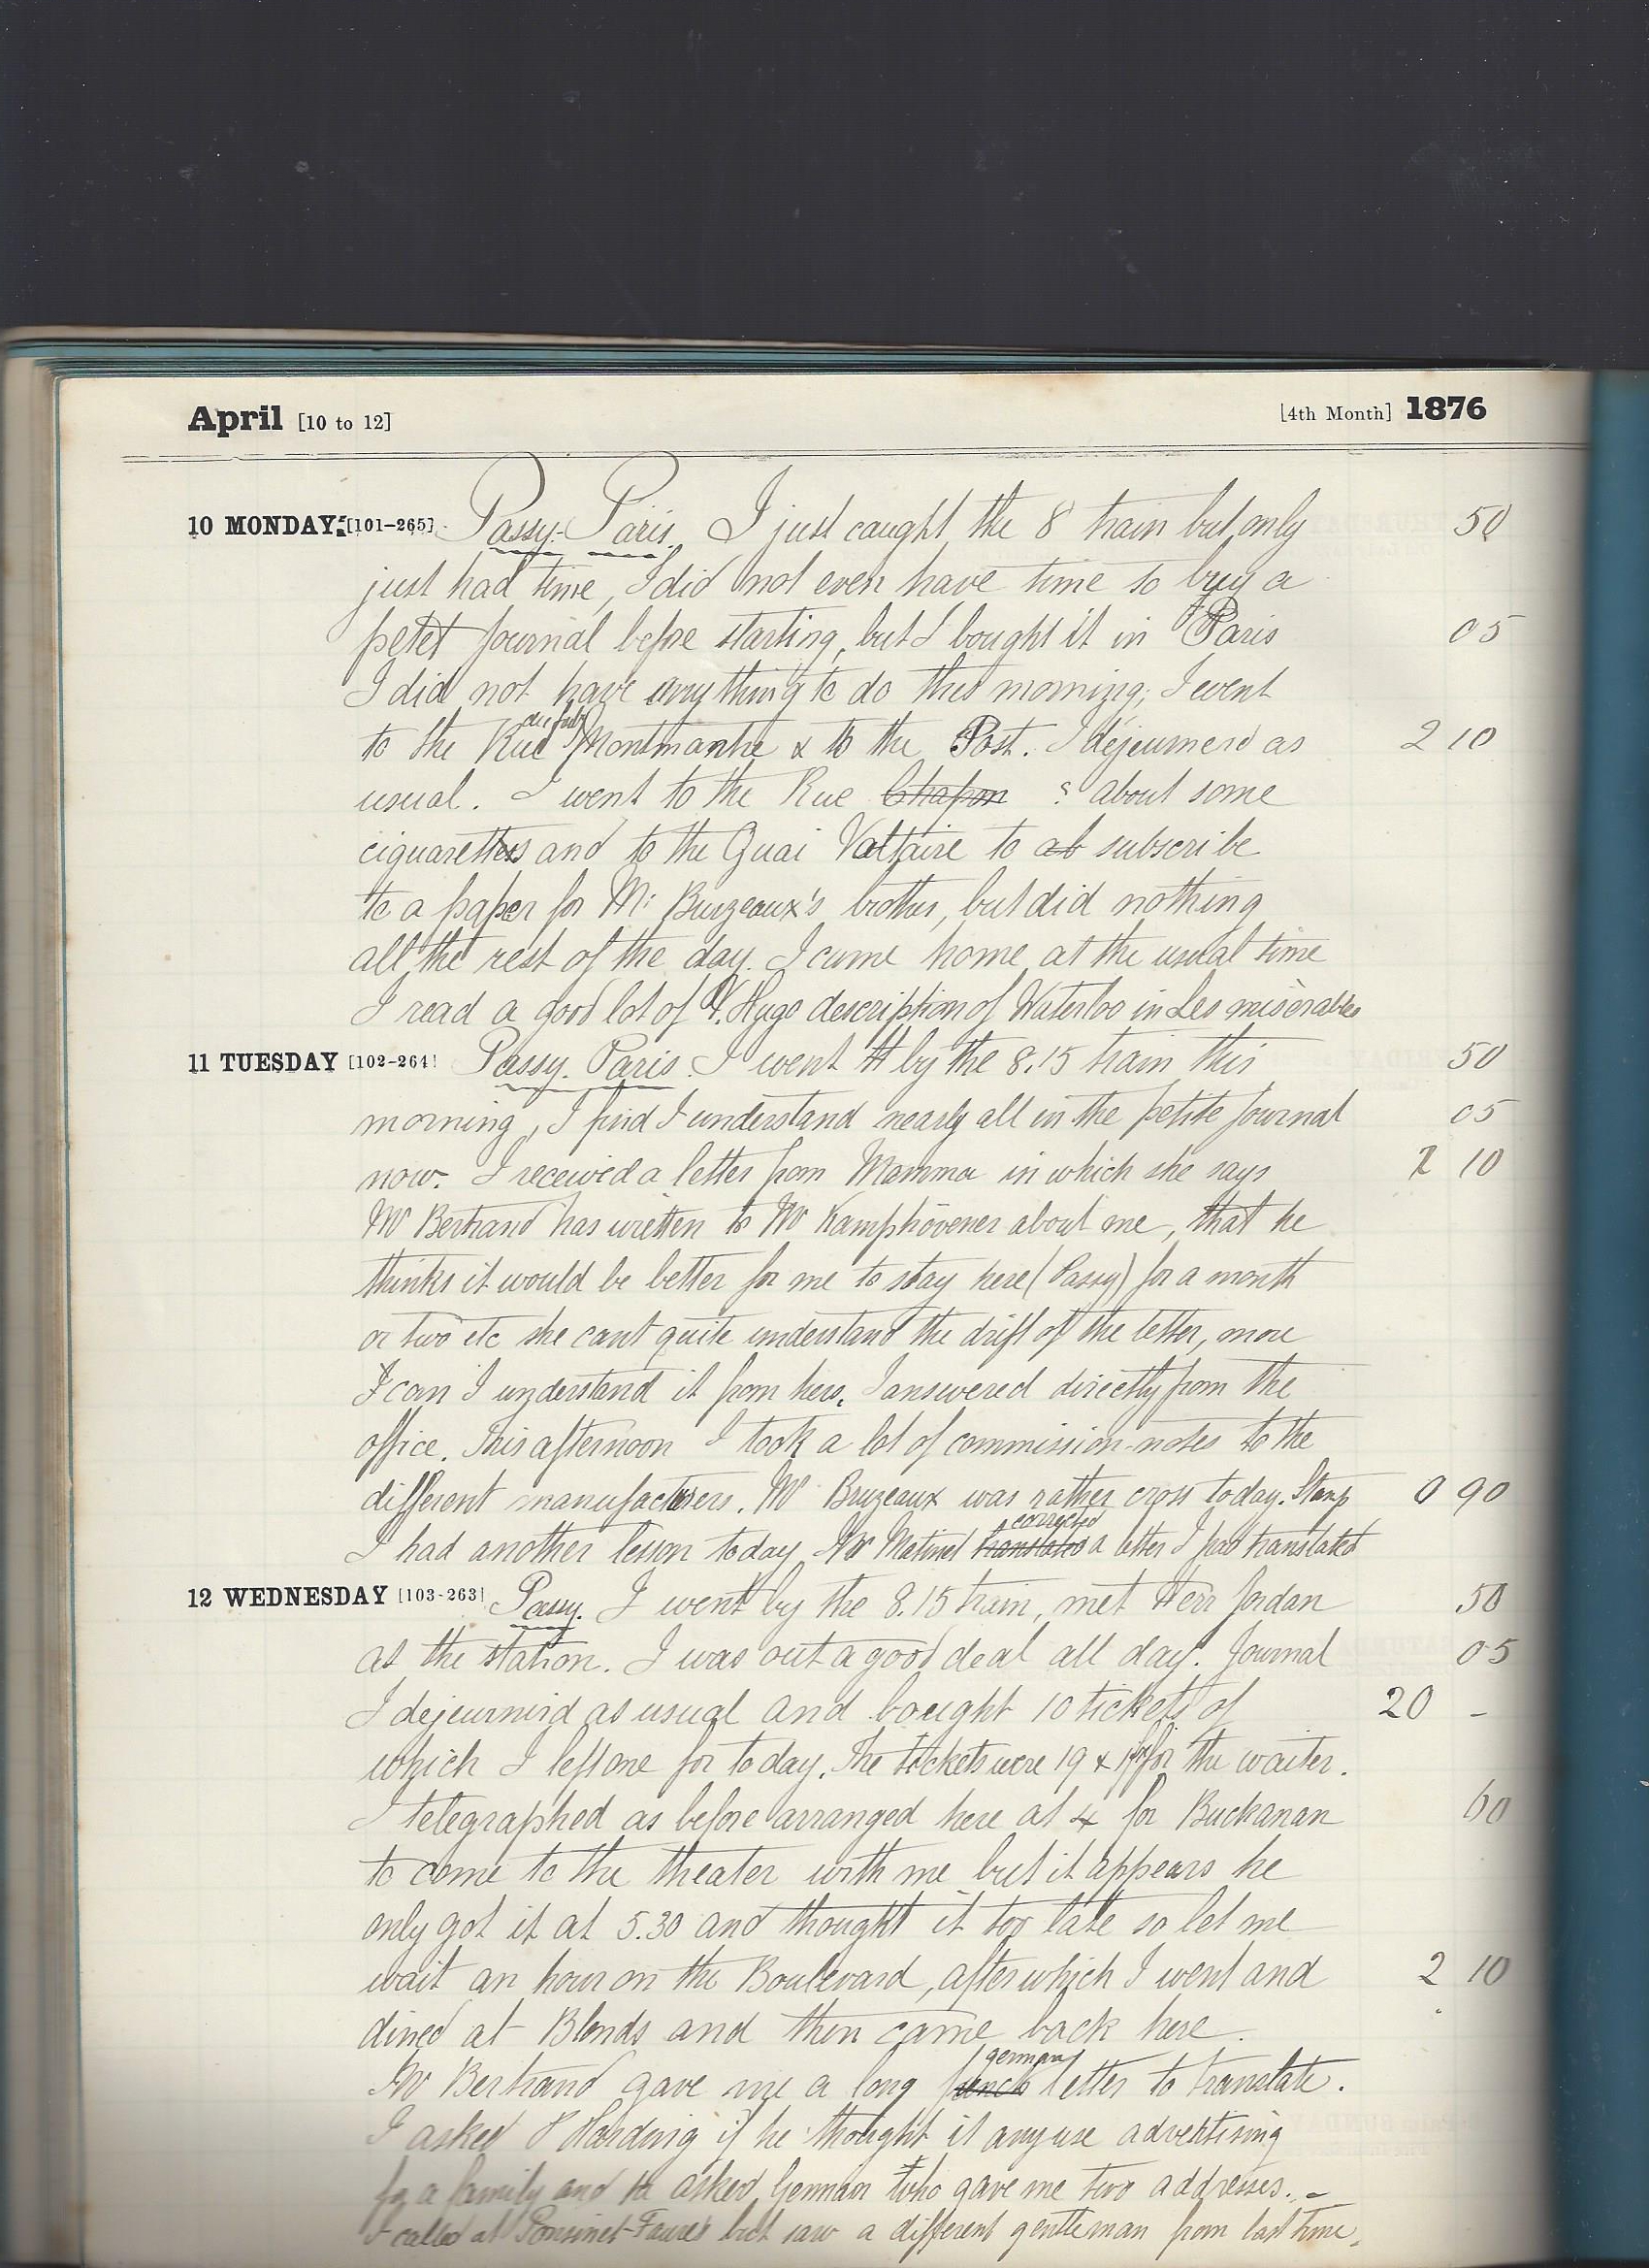 April [10 to 12] [4th Month] 1876
10 MONDAY [101-265] Passy. Paris. I just caught the 8 train but only 50
just had time, I did not even have time to buy a
petet Journal before starting, but I bought it in Paris 05
I did not have anything to do this morning, I went
to the Rue du fab Montmantre & to the Post. I dejeunerd as 2 10
usual. I went to the Rue Chapon ? about some
ciguarettes and to the Quai Voltaire to ab subscribe
to a paper for Mr Bruzeaux's brother, but did nothing
all the rest of the day. I came home at the usual time
I read a good lot of V. Hugo description of Waterloo in Les misèrables
11 TUESDAY [102-264] Passy. Paris. I went by the 8.15 train this 50
morning, I find I understand nearly all in the petite Journal 05
now. I received a letter from Mamma in which she says 2 10
Mr Bertrand has written to Mr Kamphövener about me, that he
thinks it would be better for me to stay here (Passy) for a month
or two etc she cant quite understand the drift of the letter, more
I can I understand it from hers. I answered directly from the
office. This afternoon I took a lot of commission-notes to the
different manufacturers. Mr Bruzeaux was rather cross today. Stamp 0 90
I had another lesson today Mr Matinel translated corrected a letter I had translated
12 WEDNESDAY [103-263] Passy. I went by the 8.15 train, met Herr Jordan 50
at the station. I was out a good deal all day. Journal 05
I dejeunerd as usual and bought 10 tickets of 20 -
which I left one for today. The tickets were 19 & 1 for the waiter.
I telegraphed as before arranged here at 4 for Buckanan 60
to come to the theater with me but it appears he
only got it at 5.30 and thought it too late so let me
wait an hour on the Boulevard, after which I went and 2 10
dined at Blonds and then came back here.
Mr Bertrand gave me a long french german letter to translate.
I asked P Harding if he thought it any use advertising
for a family and he asked Gennain who gave me two addresses. -
I called at Ponsinet-Faure's but saw a different gentleman from last time.